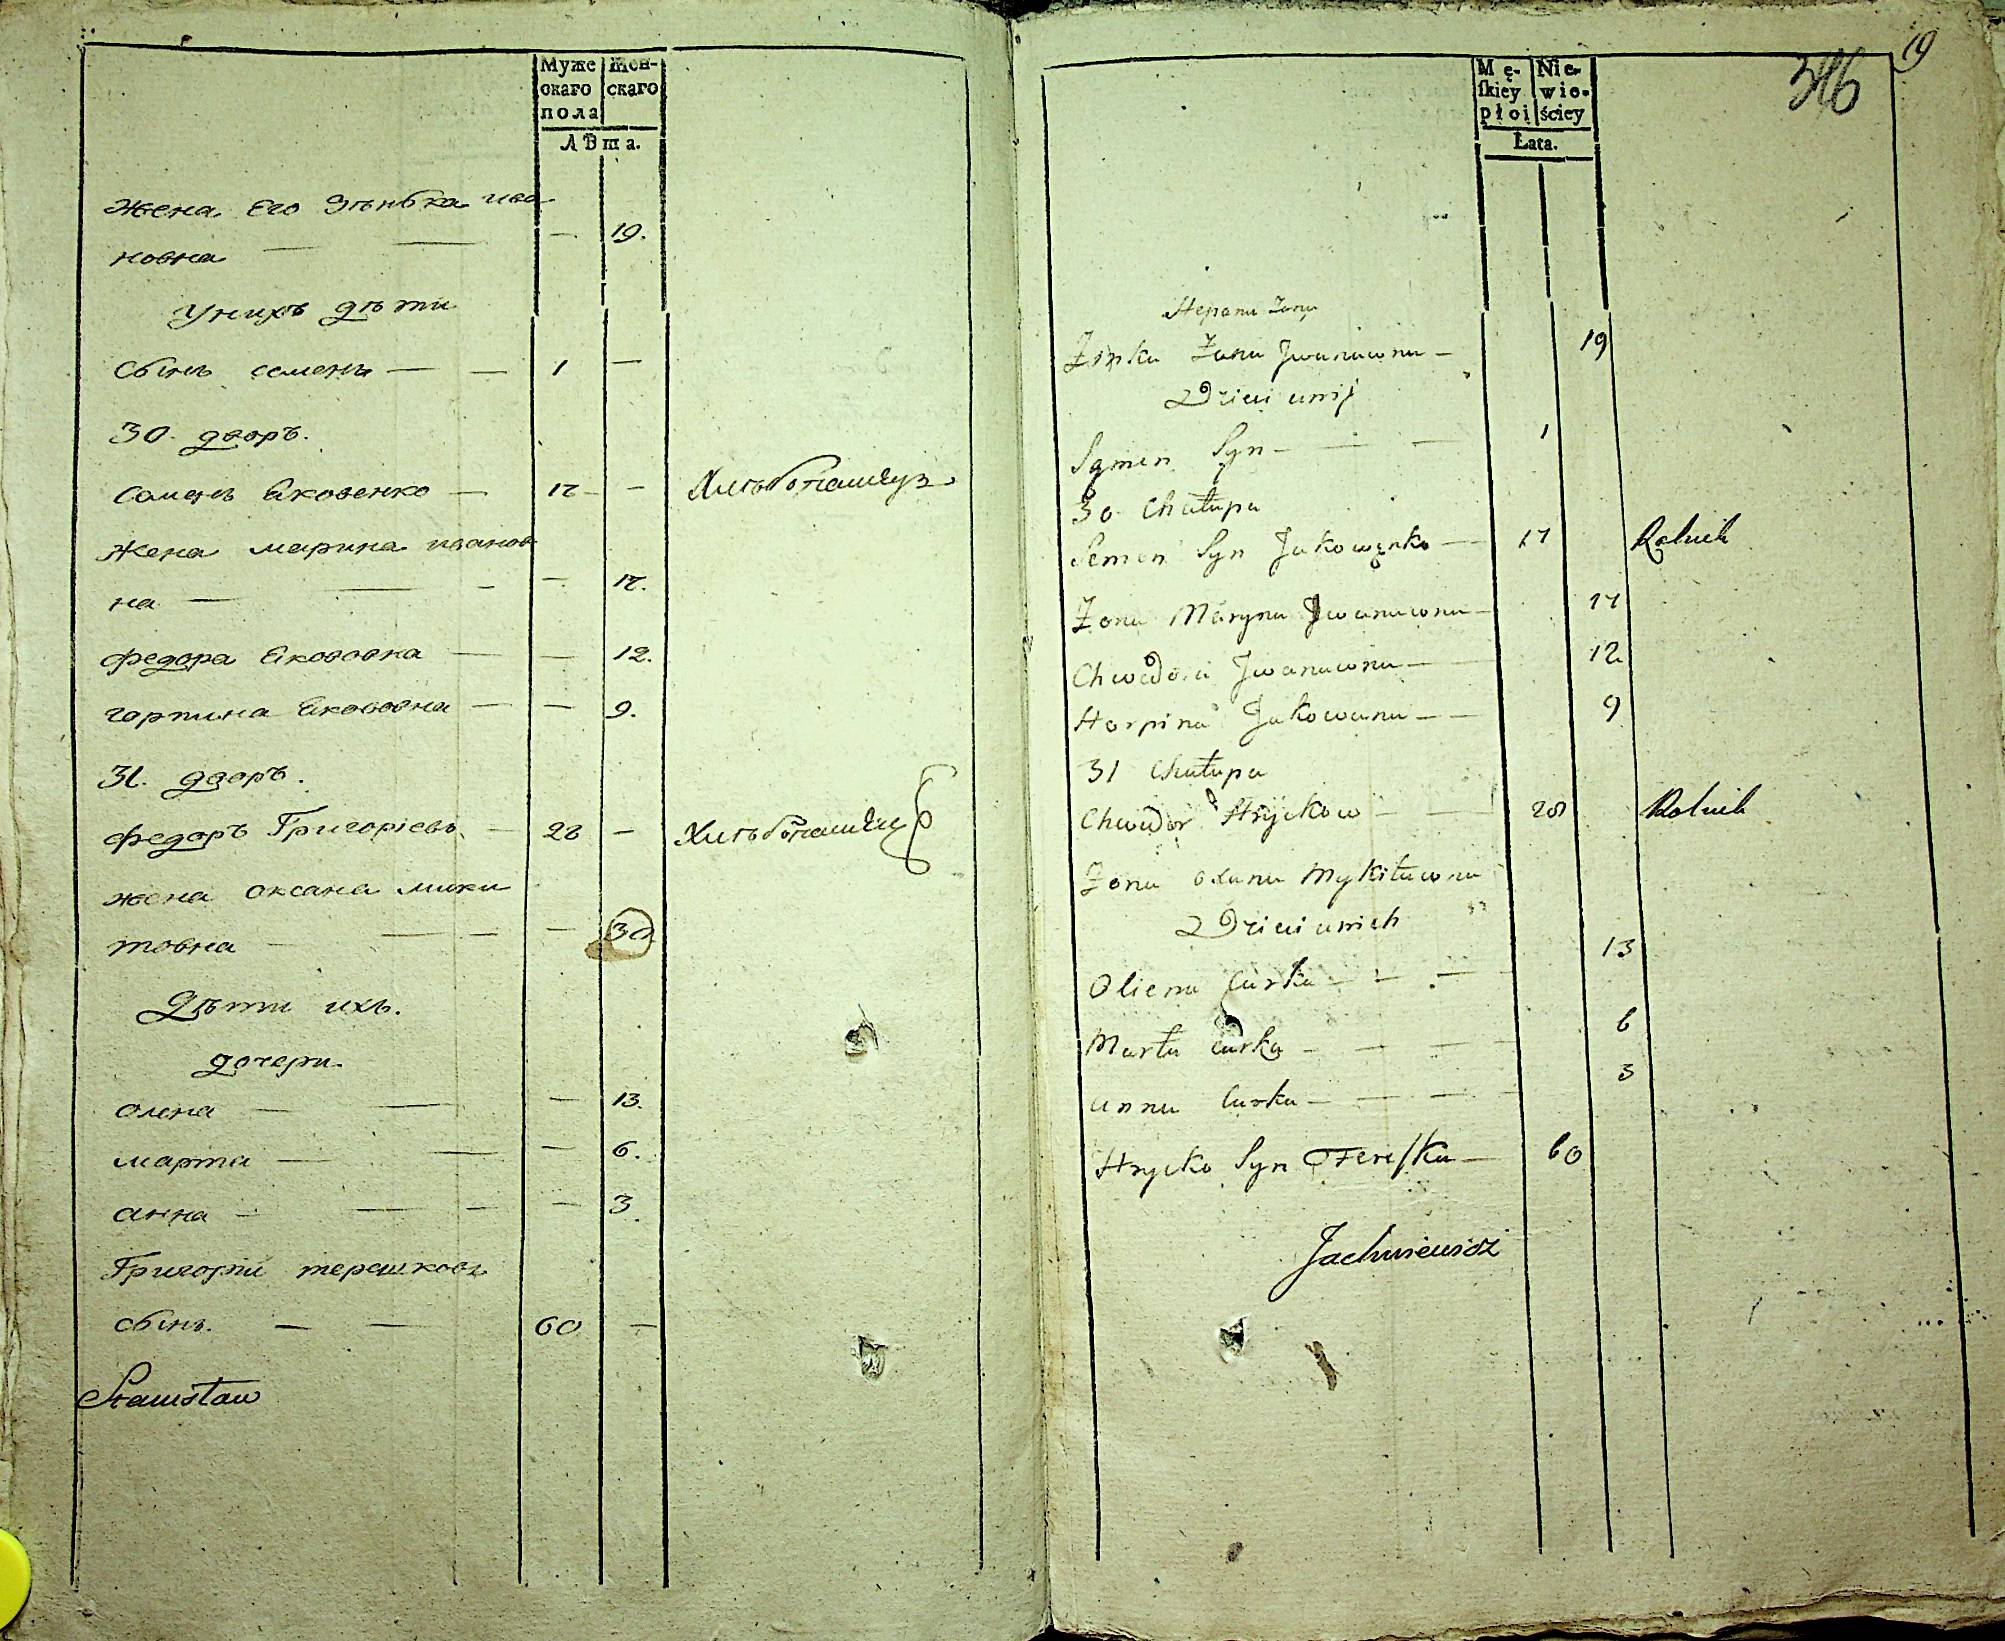 Муже
скаго
пола
Жен-
скаго
Лѣта.
жена его ива
новна — — — 19.
У нихъ дѣти
сынъ семенъ — — 1 —
30. дворъ.
семенъ Яковенко — 17 — — Хлѣбопашецъ
жена марина иванов
на — — — — 17.
федора Якововна — — 12.
горпина Якововна — — 9.
31. дворъ.
федоръ Григорiевъ — 28 — Хлѣбопашецъ
жена оксана мики
товна — — — — 30.
Дѣти ихъ.
дочери.
олена — — — 13.
марта — — — 6.
анна — — — — 3.
Григорiй терешковъ
сынъ. — — 60 —
Stanisław
19
346
Mę-
skiey
płci
Nie-
wie-
ściey
Łata.
Żona Jwanawna — 19
Dzieci
Semen Syn — — — 1
30 Chałupa
Semen Syn Jakowęnko — 17 Rolnik
Żona Maryna Jwanawna — 17
Chwedora Jwanawna — 12
Horpina Jakowna — — 9
31 Chałupa
Chwedor Hryckow — — 28 Rolnik
Żona oxana Mykitawna
Dzieci unich
Oliena Curka — — — 13
Marta Curka — — — 6
anna Curka — — — — 3
Hrycko Syn Tereszka — 60
Jachniewicz